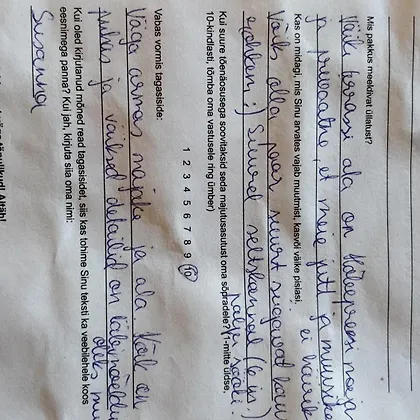 Mis pakkus meeldivat üllatust?
Väike terrassi ala on
ja privaatne, et meie jutt ja muusika
ei häiriks
Kas on midagi, mis Sinu arvates vajab muutmist, kasvõi väike pisiasi.
Võiks olla paar suurt sügavat kaussi
rohkem :) Suurel seltskonnal (6 in.)
Kui suure tõenäosusega soovitaksid seda majutusasutust oma sõpradele? (1-mitte üldse,
10-kindlasti, tõmba oma vastusele ring ümber)
1 2 3 4 5 6 7 8 9 10
Vabas vormis tagasiside:
Väga armas majake ja ala. Kõik on
puhas ja väiksed detailid on läbimõeldud
Kui oled kirjutanud mõned read tagasisidet, siis kas tohime Sinu teksti ka veebilehele koos
eesnimega panna? Kui jah, kirjuta siia oma nimi:
Susanna